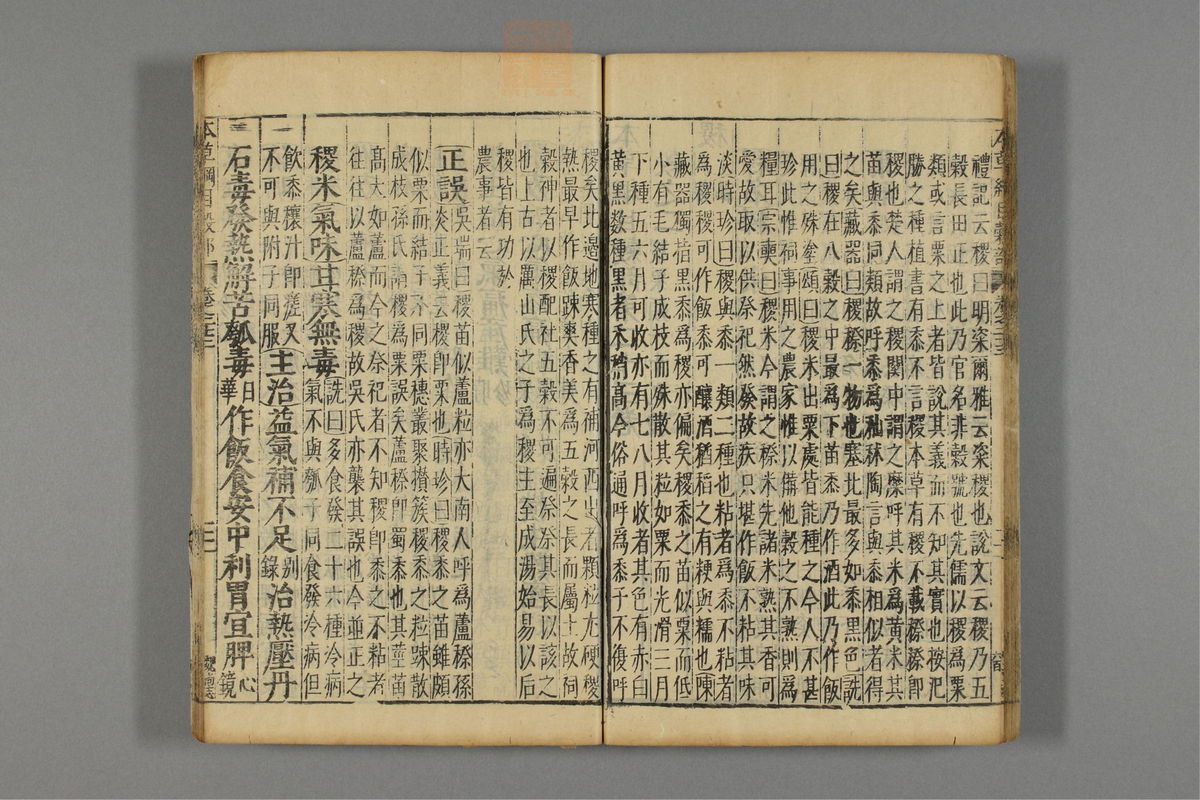 本草綱目穀部 卷之二十三
禮記云稷曰明粢爾雅云粢稷也說文云稷乃五
穀長田正也此乃官名非穀號也先儒以稷為粟
類或言粟之上者皆說其義而不知其實也按氾
勝之種植書有黍不言稷本草有稷不載穄穄即
稷也楚人謂之稷関中謂之糜呼其米為黄米其
苗與黍同類故呼黍為秈秫陶言與黍相似者得
之矣藏器曰稷穄一物也塞北最多如黍黑色詵
曰稷在八穀之中最為下苗黍乃作酒此乃作飯
用之殊塗頌曰稷米出粟處皆能種之今人不甚
珍此惟祠事用之農家惟以備他穀之不熟則為
糧耳宗奭曰稷米今謂之穄米先諸米熟其香可
愛故取以供祭祀然發故疾只堪作飯不粘其味
淡時珍曰稷與黍一類二種也粘者為黍不粘者
為稷稷可作飯黍可釀酒猶稻之有粳與糯也陳
藏器獨指黑黍為稷亦偏矣稷黍之苗似粟而低
小有毛結子成枝而殊散其粒如粟而光滑三月
下種五六月可收亦有七八月收者其色有赤白
黄黑数種黑者禾稍高今俗通呼為黍子不復呼
稷矣北邊地寒種之有補河西出者顆粒尤硬稷
熟最早作飯踈爽香美為五穀之長而屬土故祠
穀神者以稷配社五穀不可遍祭祭其長以該之
也上古以厲山氏之子為稷主至成湯始易以后
稷皆有功於
農事者云
正誤吳瑞曰稷苗似蘆粒亦大南人呼為蘆穄孫
炎正義云稷即粟也時珍曰稷黍之苗雖頗
似粟而結子不同粟穗叢聚攢簇稷黍之粒踈散
成枝孫氏謂稷為粟誤矣蘆穄即蜀黍也其莖苗
高大如蘆而今之祭祀者不知稷即黍之不粘者
往往以蘆穄為稷故吳氏亦襲其誤也今並正之
稷米氣味甘寒無毒詵曰多食發二十六種冷病
氣不與瓠子同食發冷病但
飲黍穰汁即瘥又
不可與附子同服主治益氣補不足別錄治熱壓丹
石毒發熱解苦瓠毒日華作飯食安中利胃宜脾心鏡
本草綱目穀部 卷之二十三